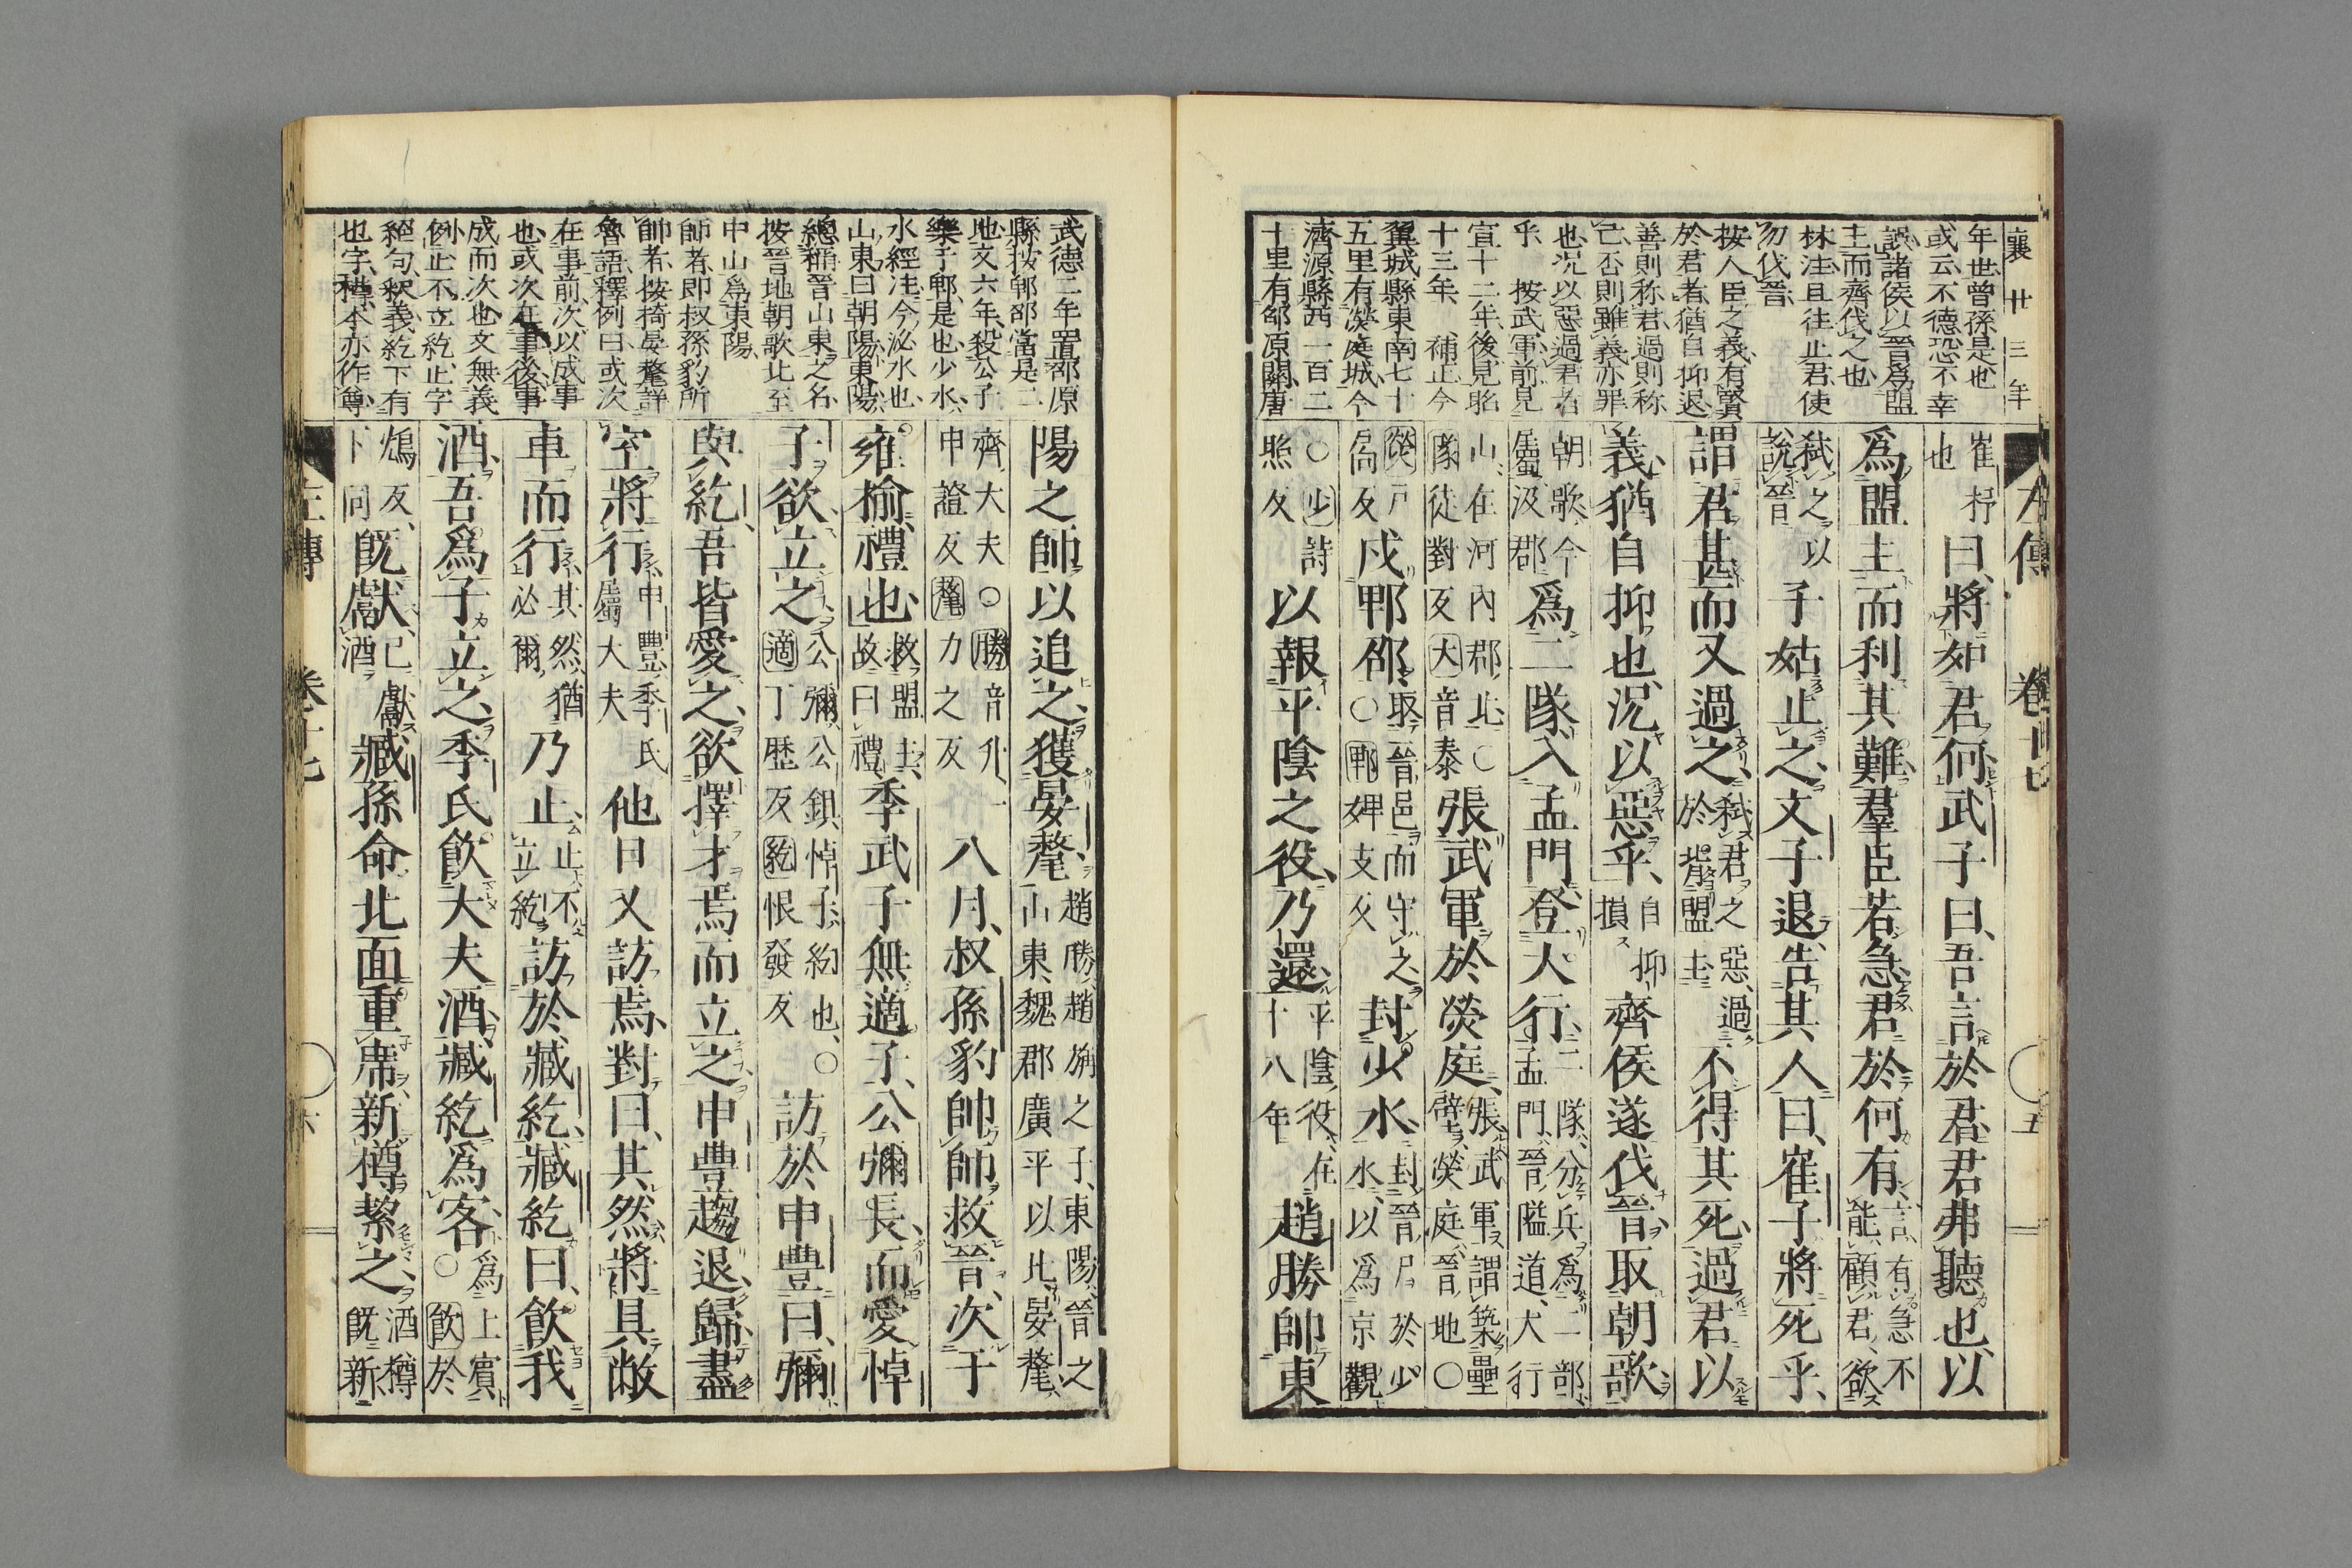 襄 廿三年
年世曽孫是也
或云不德恐不幸
誤諸侯以晉爲盟
主而齊伐之也
林注且往止君使
勿伐晉
按人臣之義有賢
於君者猶自抑退
善則称君過則称
己否則雖義亦罪
也况以惡過君者
乎 按武軍前見
宣十二年後見昭
十三年 補正今
翼城縣東南七十
五里有熒庭城今
濟源縣西一百二
十里有郃原關唐
左傳 卷十七 五
崔杼也 曰將如君何武子曰吾言於君君弗聽也以
爲盟主而利其難羣臣若急君於何有 言有急不能顧君欲
弑之以說晉 子姑止之文子退告其人曰崔子將死乎
謂君甚而又過之 弑君之惡過於背盟主 不得其死過君以
義猶自抑也况以惡乎 自抑損 齊侯遂伐晉取朝歌
朝歌今屬汲郡 爲二隊入孟門登大行 二隊分兵爲二部孟門晉隘道大行
山在河内郡北○隊徒對反大音泰 張武軍於熒庭 張武軍謂築壘壁熒庭晉地○
熒户扃反 戍郫邵 取晉邑而守之○郫婢支反 封少水 封晉尸於少水以爲京觀
○少詩照反 以報平陰之役乃還 平陰役在十八年 趙勝帥東
武德二年置郃原
縣按郫郃當是二
地文六年殺公子
樂于郫是也少水
水經注今泌水也
山東曰朝陽東陽
總稱晉山東之名
按晉地朝歌北至
中山爲東陽
師者即叔孫豹所
帥者按掎晏氂詳
魯語釋例曰或次
在事前次以成事
也或次在事後事
成而次也文無義
例止不立紇止字
絕句釈義紇下有
也字樽本亦作尊
陽之師以追之獲晏氂 趙勝趙旃之子東陽晉之山東魏郡廣平以北晏氂
齊大夫○勝音升一申證反氂力之反 八月叔孫豹帥師救晉次于
雍榆禮也 救盟主故曰禮 季武子無適子公彌長而愛悼
子欲立之 公彌公鉏悼子紇也○適丁歴反紇恨發反 訪於申豐曰彌
與紇吾皆愛之欲擇才焉而立之申豐趨退歸盡
室將行 申豐季氏屬大夫 他日又訪焉對曰其然將具敝
車而行 其然猶必爾 乃止 止不立紇 訪於臧紇臧紇曰飲我
酒吾爲子立之季氏飲大夫酒臧紇爲客 爲上賓○飲於
鴆反下同 既獻 已獻酒 臧孫命北面重席新樽絜之 酒樽既新
左傳 卷十七 六